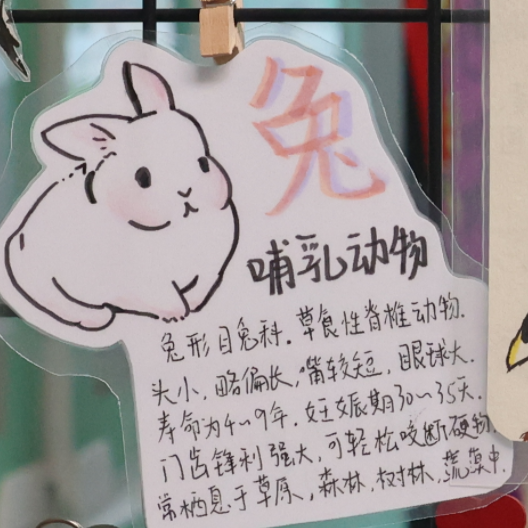 兔
哺乳动物
兔形目兔科.草食性脊椎动物.
头小,略偏长,嘴较短,眼球大.
寿命为4~9年.妊娠期30~35天.
门齿锋利强大,可轻松咬断硬物
常栖息于草原,森林.树林.荒漠中.